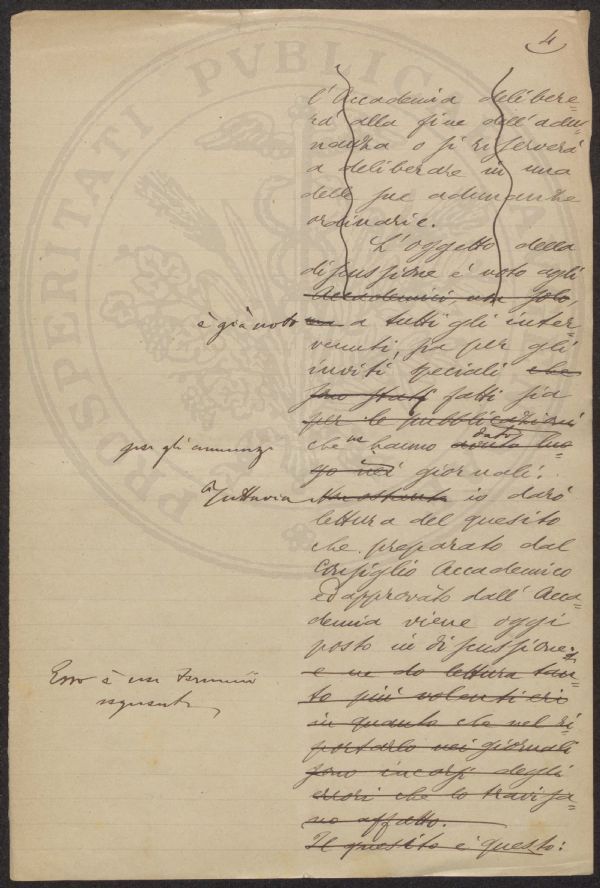 4
PROSPERITATI PVBLICAE
l'Accademia delibere=
rà alla fine dell'adu=
nanza o si riserverà
a deliberare in una
delle sue adunanze
ordinarie.
L'oggetto della
discussione è noto agli
Accademici non solo,
è già noto
ma a tutti gli inter=
venuti, sia per gli
inviti speciali che
sono stati fatti sia
per le pubblicazioni
per gli annunzi
che ne hanno avuto luo=
dato
go nei giornali.
i
Tuttavia
Nonostante io darò
lettura del quesito
che preparato dal
Consiglio Accademico
ed approvato dall'Acca=
demia viene oggi
posto in discussione:
e ne do lettura tan=
Esso è nei termini
to più volentieri
seguenti
in quanto che nel ri=
portarlo nei giornali
sono incorsi degli
errori che lo travisa=
no affatto.
Il quesito è questo: